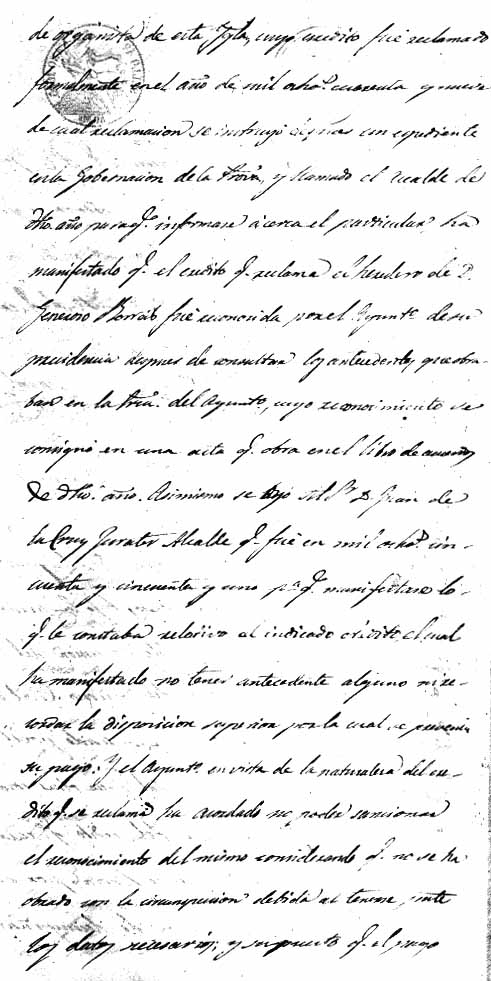 de organista de esta Ygla, cuyo credito fué reclamado
formalmente en el año de mil ochos. cuarenta y nueve
de cual reclamacion se instruyó un espediente
en la Gobernacion de la Prova, y llamado el Alcalde de
dho. año para q. informase acerca el particular, ha
manifestado q. el credito q. reclama el heredero de D.
Generoso fué reconocida por el Ayunto. de su
presidencia despues de consultar los antecedentes, que obra-
ban en la Sria. del Ayunto, cuyo reconocimiento se
consignó en una acta q. obra en el libro de acuerdos
de dho. año. Asimismo se al Sr. D. Juan de
la Cruz Alcalde q. fué en mil ochos. cin-
cuenta y cincuenta y uno pa. q. manifestase lo
q. le constaba relativo al indicado crédito, el cual
ha manifestado no tener antecedente alguno ni re-
cordar la disposicion superior por la cual se prevenia
su pago: Y el Ayunto. en vista de la naturaleza del cre-
dito q. se reclama ha acordado no poder sancionar
el reconocimiento del mismo considerando q. no se ha
obrado con la circunspeccion debida al tenerse, ante
los datos necesarios; y supuesto q. el pago